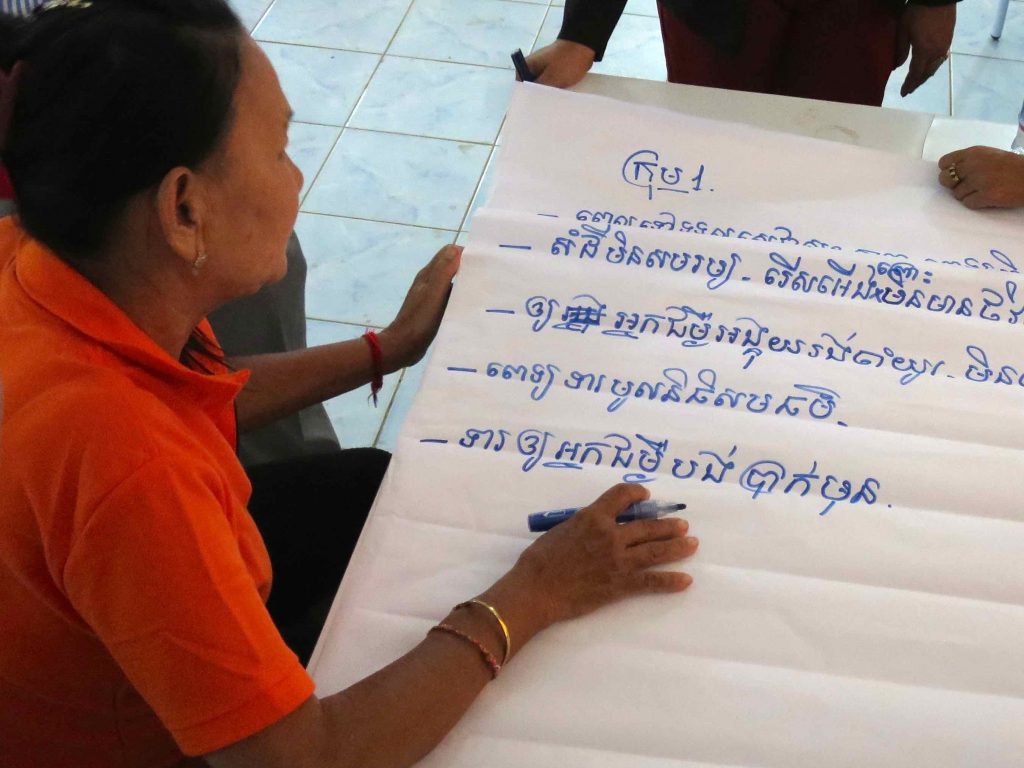 ក្រុម 1.
- ពេលទៅទទួលសេវា
- សំដីមិនសមរម្យ - រើសអើង ព្រោះ មិនមានថវិ
- ឲ្យ អ្នកជម្ងឺអង្គុយរង់ចាំយូរ - មិន
- ពេទ្យ ទារមូលនិធិសមធម៌.
- ទារ ឲ្យ អ្នកជម្ងឺ បង់ ប្រាក់មុន.